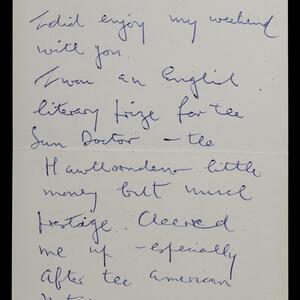 I did enjoy my weekend
with you.
I won an English
literary prize for the
Sun Doctor – the
Hawthornden – little
money but much
prestage. Cheered
me up – especially
after the American